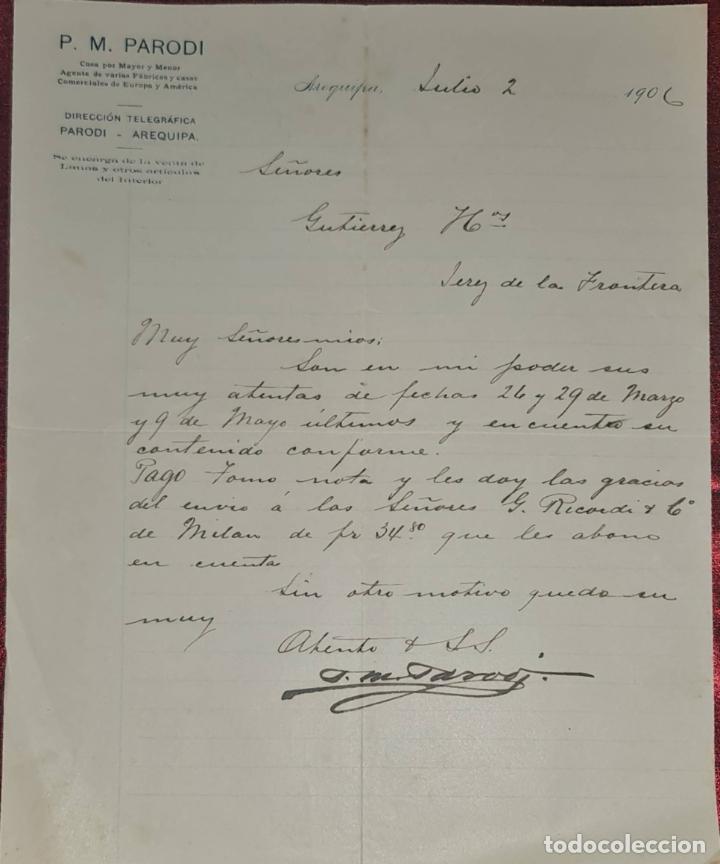 P. M. PARODI
Casa por Mayor y Menor
Agente de varias Fábricas y casas
Comerciales de Europa y América
DIRECCIÓN TELEGRÁFICA
PARODI - AREQUIPA.
Se encarga de la venta de
Lanas y otros artículos
del Interior
Arequipa, Julio 2 1906
Señores
Gutierrez Hos
Jerez de la Frontera
Muy Señores mios:
Son en mi poder sus
muy atentas de fechas 26 y 29 de Marzo
y 9 de Mayo últimos y encuentro su
contenido conforme.
Pago Tomo nota y les doy las gracias
del envio á los Señores G. Ricordi & Co
de Milan de fr 34.80 que les abono
en cuenta
Sin otro motivo quedo su
muy
Atento & S.S.
P. M. Parodi.
todocoleccion